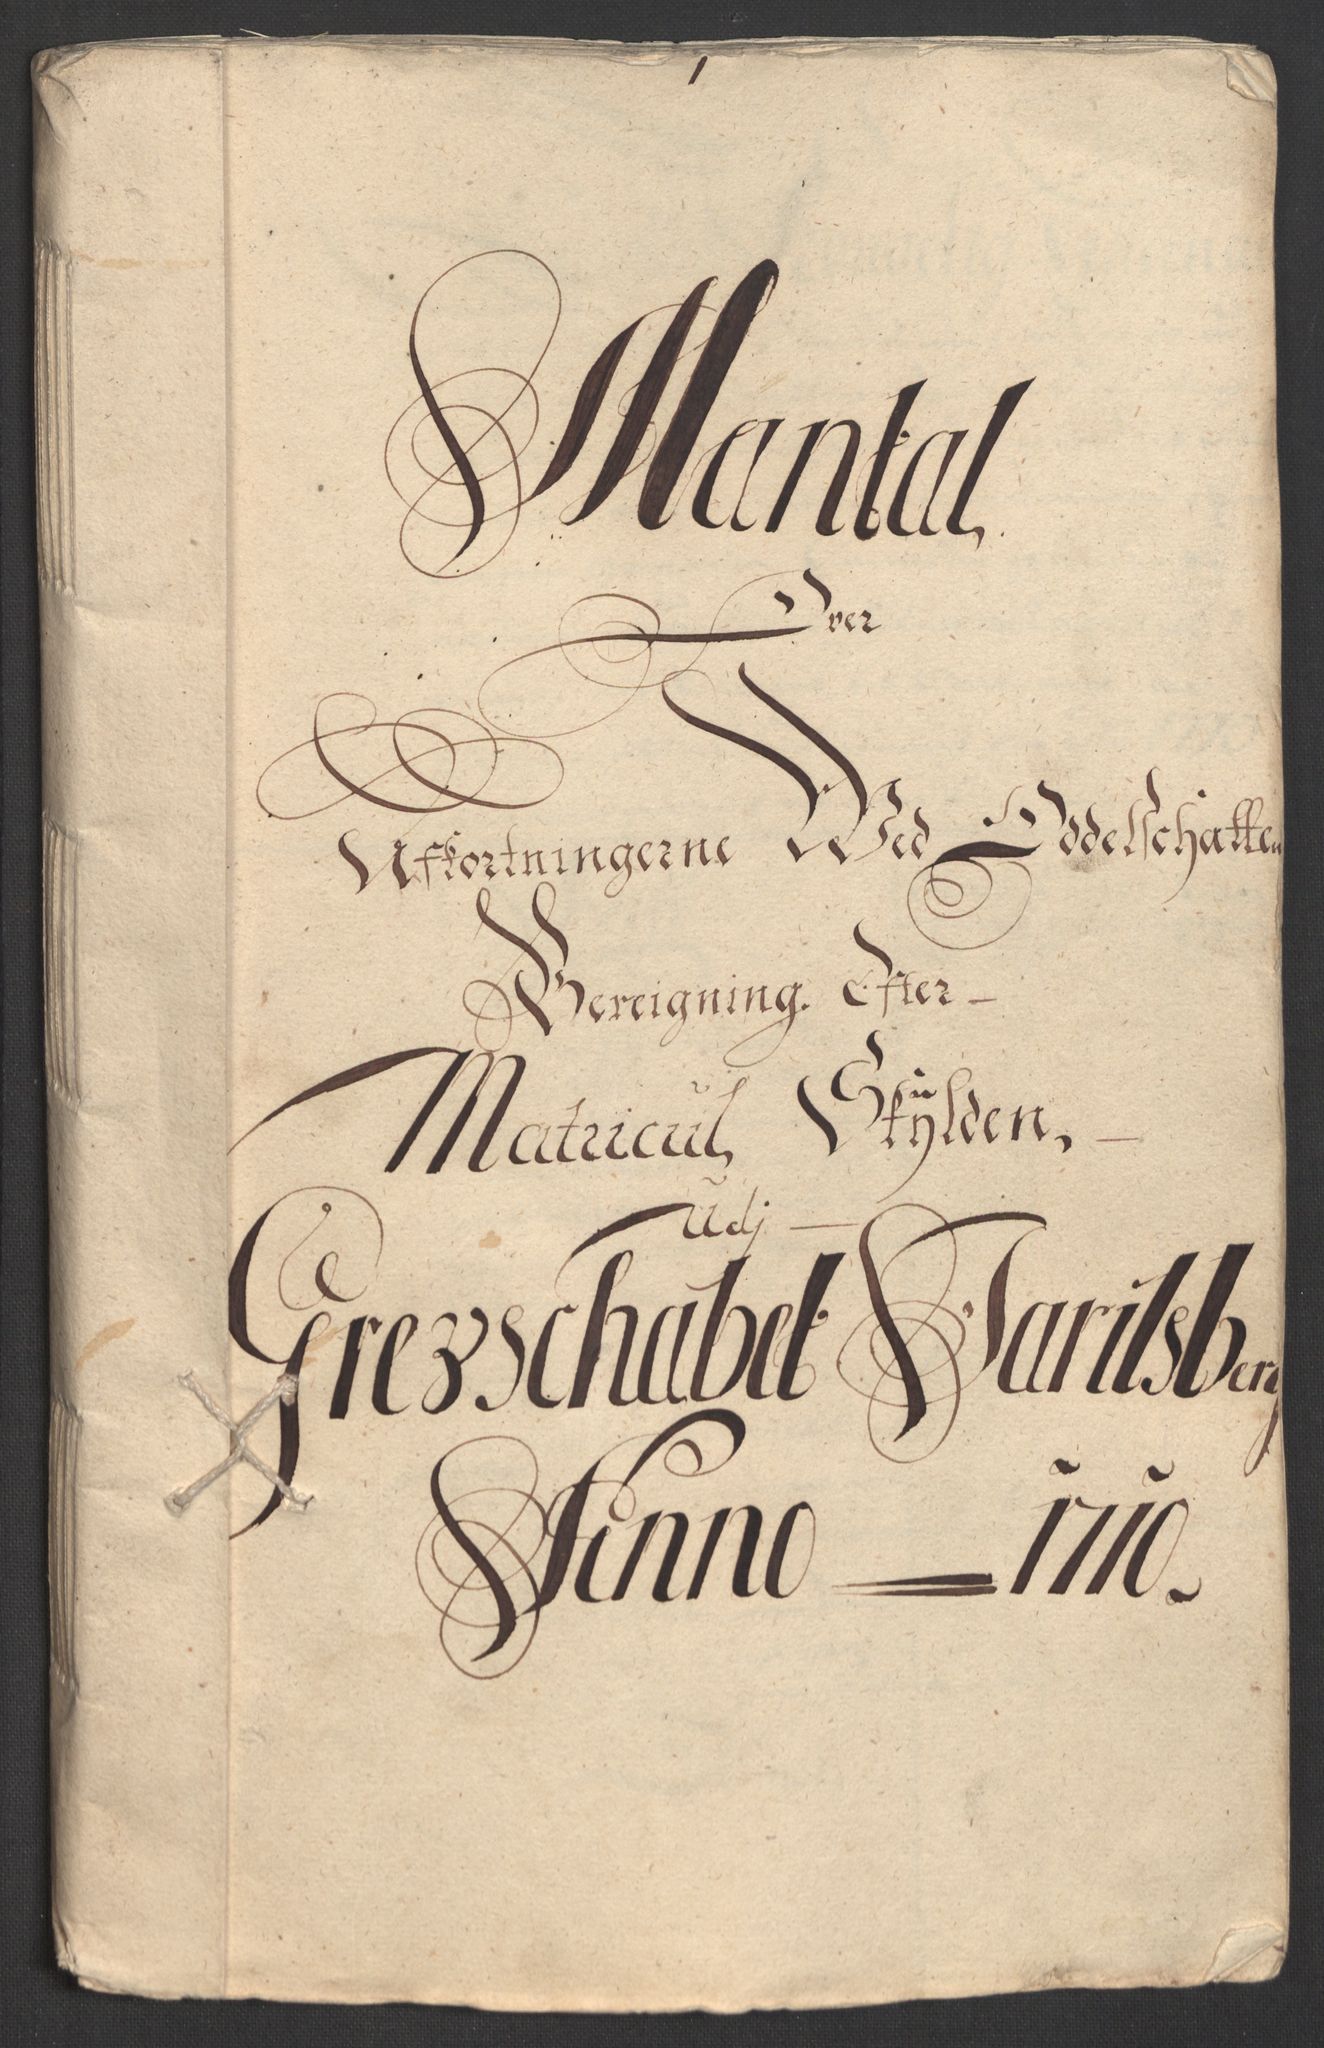 1
Mantal,
Over
Afkortningerne Wed Oddelschatten
Bereigning. Efter –
Matricul, Skÿlden, –
udj –
Grevschabet Jarilsberg
Anno – 1710.